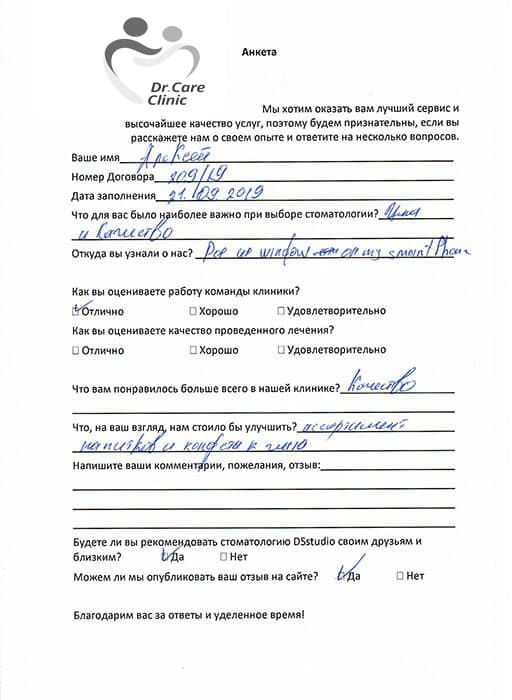 Dr.Care
Clinic
Анкета
Мы хотим оказать вам лучший сервис и
высочайшее качество услуг, поэтому будем признательны, если вы
расскажете нам о своем опыте и ответите на несколько вопросов.
Ваше имя Алексей
Номер Договора 209/19
Дата заполнения 21.09.2019
Что для вас было наиболее важно при выборе стоматологии? Цена
и качество
Откуда вы узнали о нас? Pop up window on my smart Phone
Как вы оцениваете работу команды клиники?
☑ Отлично ☐ Хорошо ☐ Удовлетворительно
Как вы оцениваете качество проведенного лечения?
☐ Отлично ☐ Хорошо ☐ Удовлетворительно
Что вам понравилось больше всего в нашей клинике? Качество
Что, на ваш взгляд, нам стоило бы улучшить? ассортимент
напитков и конфеты к чаю
Напишите ваши комментарии, пожелания, отзыв:
Будете ли вы рекомендовать стоматологию DSstudio своим друзьям и
близким? ☑ Да ☐ Нет
Можем ли мы опубликовать ваш отзыв на сайте? ☑ Да ☐ Нет
Благодарим вас за ответы и уделенное время!